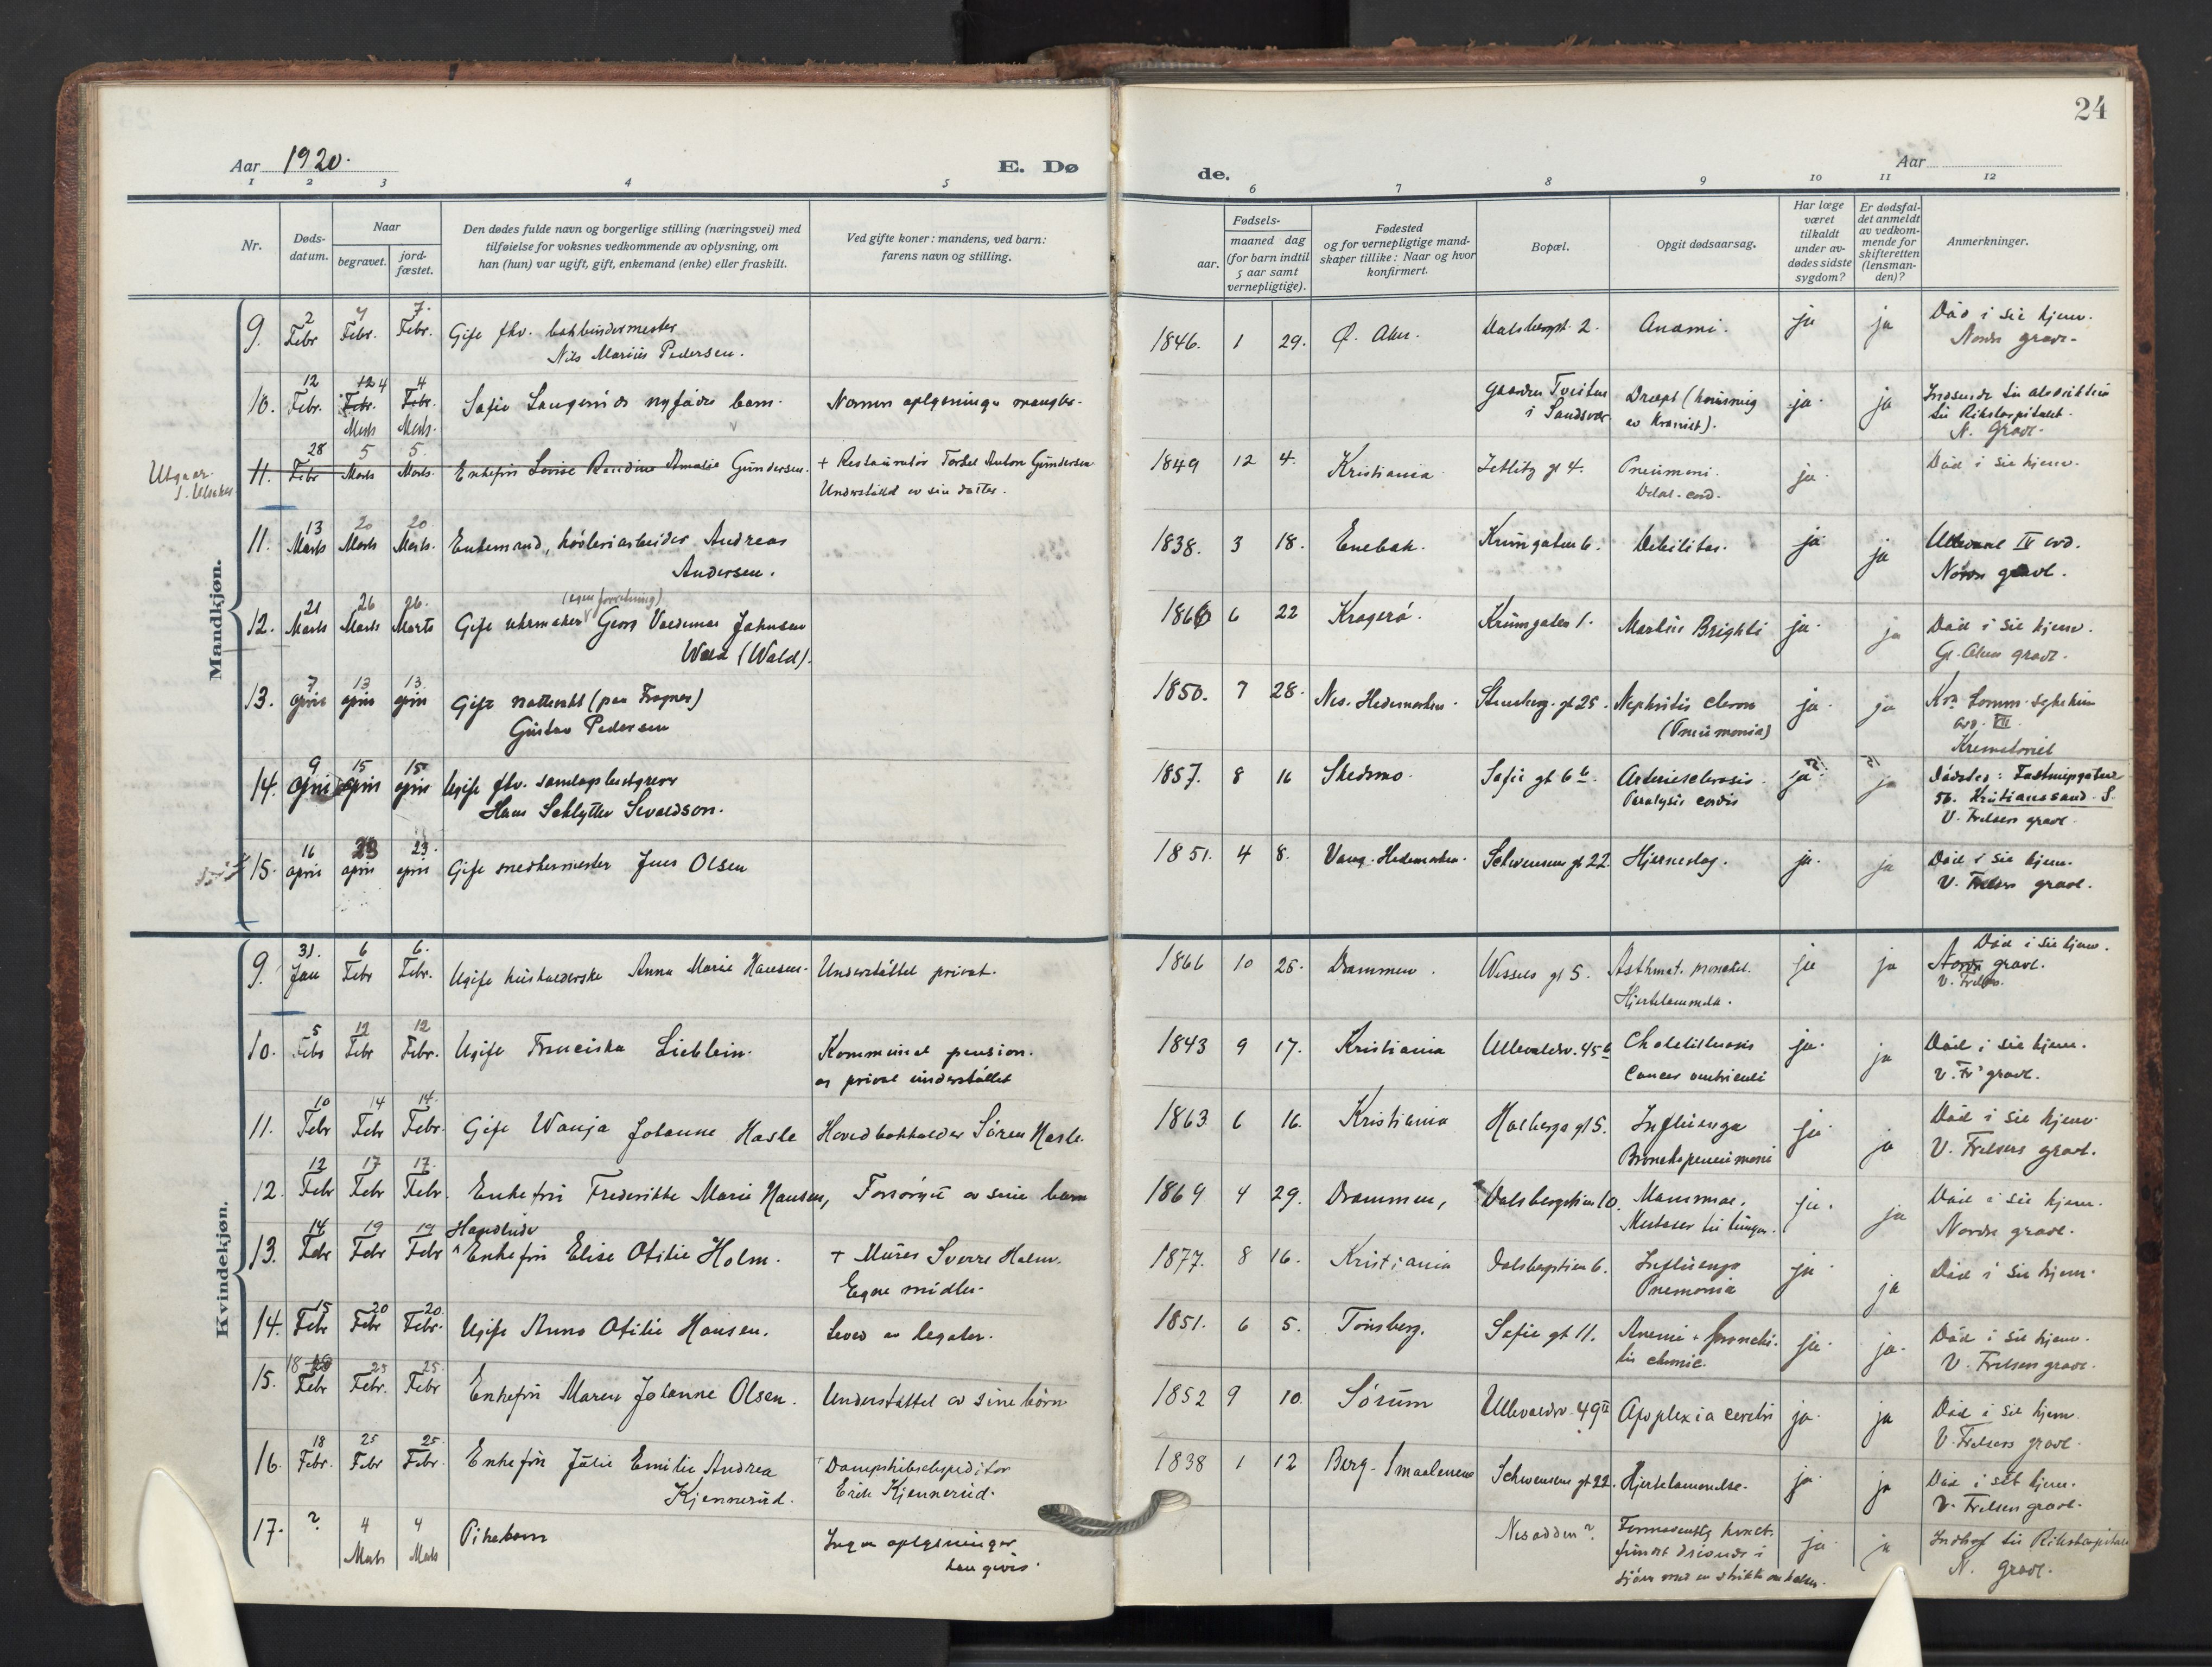 24
Aar 1920.
E. Dø
de.
Aar
1 2 3 4 5
6 7 8 9 10 11 12
Nr.
Døds-
datum.
Naar
begravet.
jord-
fæstet.
Den dødes fulde navn og borgerlige stilling (næringsvei) med
tilføielse for voksnes vedkommende av oplysning, om
han (hun) var ugift, gift, enkemand (enke) eller fraskilt.
Ved gifte koner: mandens, ved barn:
farens navn og stilling.
Fødsels-
aar.
maaned dag
(for barn indtil
5 aar samt
vernepligtige).
Fødested
og for vernepligtige mand-
skaper tillike: Naar og hvor
konfirmert.
Bopæl.
Opgit dødsaarsag.
Har læge
været
tilkaldt
under av-
dødes sidste
sygdom?
Er dødsfal-
det anmeldt
av vedkom-
mende for
skifteretten
(lensman-
den)?
Anmerkninger.
Mandkjøn.
9. 2 Febr 7 Febr. 7. Febr. Gift fhv. bokbindermester
Nils Marius Pedersen.
1846. 1 29. Ø. Aker. Dalsbergst. 2. Anæmi. ja ja Död i sit hjem.
Nordre gravl.
10. 12 Febr. 12 4 Febr. Marts 4 Febr. Marts. Sofie Laugeruds nyfödte barn. Nærmere oplysninger mangler.
gaarden Tveiten
i Sandsvær
Dræpt (knusning
av kraniet).
ja ja
til Rikshospitalet.
N. Gravl.
Utgaar
11. 28 Febr 5 Marts 5. Marts. Enkefru Lovise Randine Amalie Gundersen. + Restauratör Torkel Anton Gundersen
Understöttet av sin datter.
1849 12 4. Kristiania Zetlitz gt 4. Pneumoni.
Delat. cord.
ja. Död i sit hjem.
11. 13 Marts 20 Marts 20 Marts. Enkemand, hövleriarbeider Andreas
Andersen.
1838. 3 18. Enebak. Krumgaten 6. Debilitas. ja ja Ullevaal IV avd.
Nordre gravl.
12. 21 Marts 26 Marts 26. Marts Gift uhrmaker (egen forretning) Georg Valdemar Johnsen
Wold (Wald).
1860 6 22 Kragerö. Krumgaten 1. Morbus Brighti ja. ja Död i sit hjem.
Gl. Aker gravl.
13. 7 april 13 april 13. april Gift nattevakt (paa Frogner)
Gustav Pedersen
1850. 7 28. Nes. Hedemarken. Stensberg. gt 25. Nephritis chron
(Pneumonia)
ja ja Kra. komm. sykehus
avd. VII.
Krematoriet
14. 9 april 15 april 15 april Ugift fhv. samlagsbestyrer
Hans Schlytter Sivaldson.
1857. 8 16 Skedsmo. Sofie gt 6 b. Arteriosclerosis.
Paralysis cordis
ja ja Dödsted: Festningsgaten
56. Kristianssand. S.
V. Frelsers gravl.
15. 16 april 23 april 23. april Gift snedkermester Jens Olsen
1851. 4 8. Vang. Hedemarken. Schwensens gt 22 Hjerneslag. ja. ja Död i sit hjem.
V. Frelsers gravl.
Kvindekjøn.
9. 31. Jan 6 Febr 6. Febr. Ugift husholderske Anna Marie Hansen. Understöttet privat.
1866 10 25. Drammen. Wessels gt 5. Asthmat. bronchial.
Hjertelammelse.
ja ja Död i sit hjem.
Nordre gravl.
V. Frelsers.
10. 5 Febr 12 Febr 12 Febr. Ugift Franciska Lieblein. Kommunal pension.
og privat understöttet
1843 9 17. Kristiania Ullevaalsv. 45 b Cholelithiasis
Cancer ventriculi
ja. ja Död i sit hjem.
V. Fr' gravl.
11. 10 Febr 14 Febr 14. Febr. Gift Wanja Johanne Hasle Hovedbokholder Sören Hasle.
1863 6 16. Kristiania Holbergs gt 5. Influenza
Bronchopneumoni
ja ja Död i sit hjem
V. Frelsers gravl.
12. 12 Febr 17 Febr 17. Febr. Enkefru Frederikke Marie Hansen, Forsörget av sine barn
1869 4 29. Drammen, Dalsbergstien 10. Mammae.
Metastaser til lunger.
ja. ja Död i sit hjem.
Nordre gravl.
13. 14 Febr 19 Febr 19 Febr Handlende
Enkefru Elise Otilie Holm. + Murer Sverre Holm.
Egne midler.
1877. 8 16. Kristiania Dalsbergstien 6. Influenza
Pnemonia
ja ja Död i sit hjem.
14. 15 Febr 20 Febr 20. Febr. Ugift Anna Otilie Hansen. Leved av legater.
1851. 6 5. Tönsberg. Sofie gt 11. Anemi + bronchi-
tis chronic.
ja. ja. Död i sit hjem.
V. Frelsers gravl.
15. 18 Febr 25 Febr. 25. Febr Enkefru Maren Johanne Olsen. Understöttet av sine börn
1852 9 10. Sörum Ullevaalsv. 49 II Apoplexia cerebri ja. ja Död i sit hjem.
V. Frelsers gravl.
16. 18 Febr. 25 Febr 25. Febr. Enkefru Julie Emilie Andrea
Kjennerud.
Dampskibsekspeditör
Erik Kjennerud.
1838 1 12 Berg. Smaalenene Schwensens gt 22. Hjertelammelse. ja. ja Död i sit hjem.
V. Frelsers gravl.
17. ? 4 Marts 4 Marts Pikebarn Ingen oplysninger
kan gives.
Nesodden? Formodentlig kvalt.
fundet drivende i
sjöen med en strikke om halsen.
ja. ja Indbragt til Rikshospitalet
N. gravl.